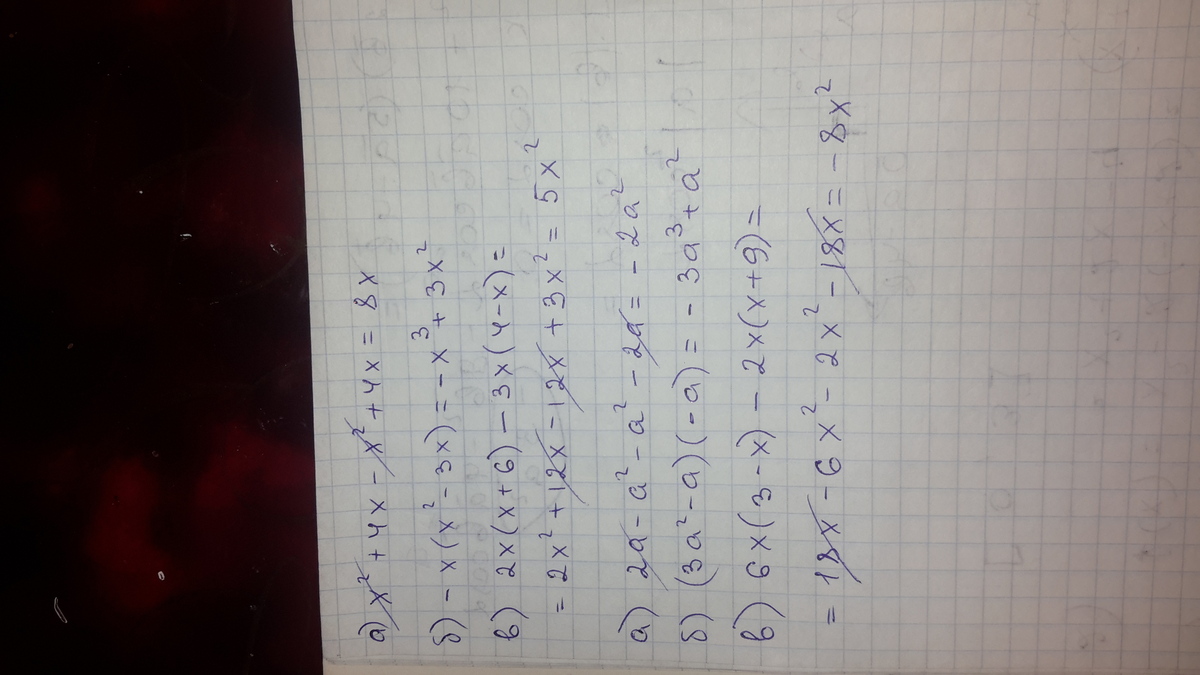 а) x² + 4x - x² + 4x = 8x
б) - x(x² - 3x) = - x³ + 3x²
в) 2x(x+6) - 3x(4-x) =
= 2x² + 12x - 12x + 3x² = 5x²
а) 2a - a² - a² - 2a = - 2a²
б) (3a² - a)(-a) = - 3a³ + a²
в) 6x(3-x) - 2x(x+9) =
= 18x - 6x² - 2x² - 18x = - 8x²